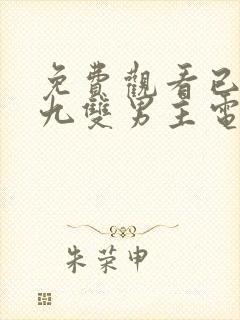 免費觀看已
九雙男主電
朱荣申